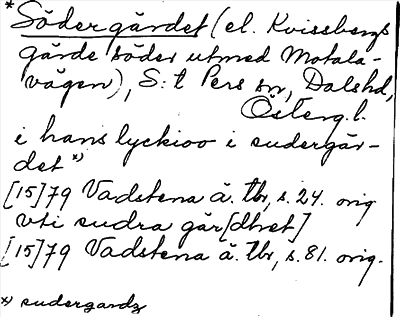 * Södergärdet (el. Kvissbergs
gärde söder utmed Motala-
vägen), S:t Pers sn, Dalshd,
Österg. l.
i hans lyckioo i sudergär-
det x)
[15]79 Vadstena ä. tbr, s. 24. orig
vti sudra går[dhet]
[15]79 Vadstena ä. tbr, s. 81. orig.
x) sudergardz